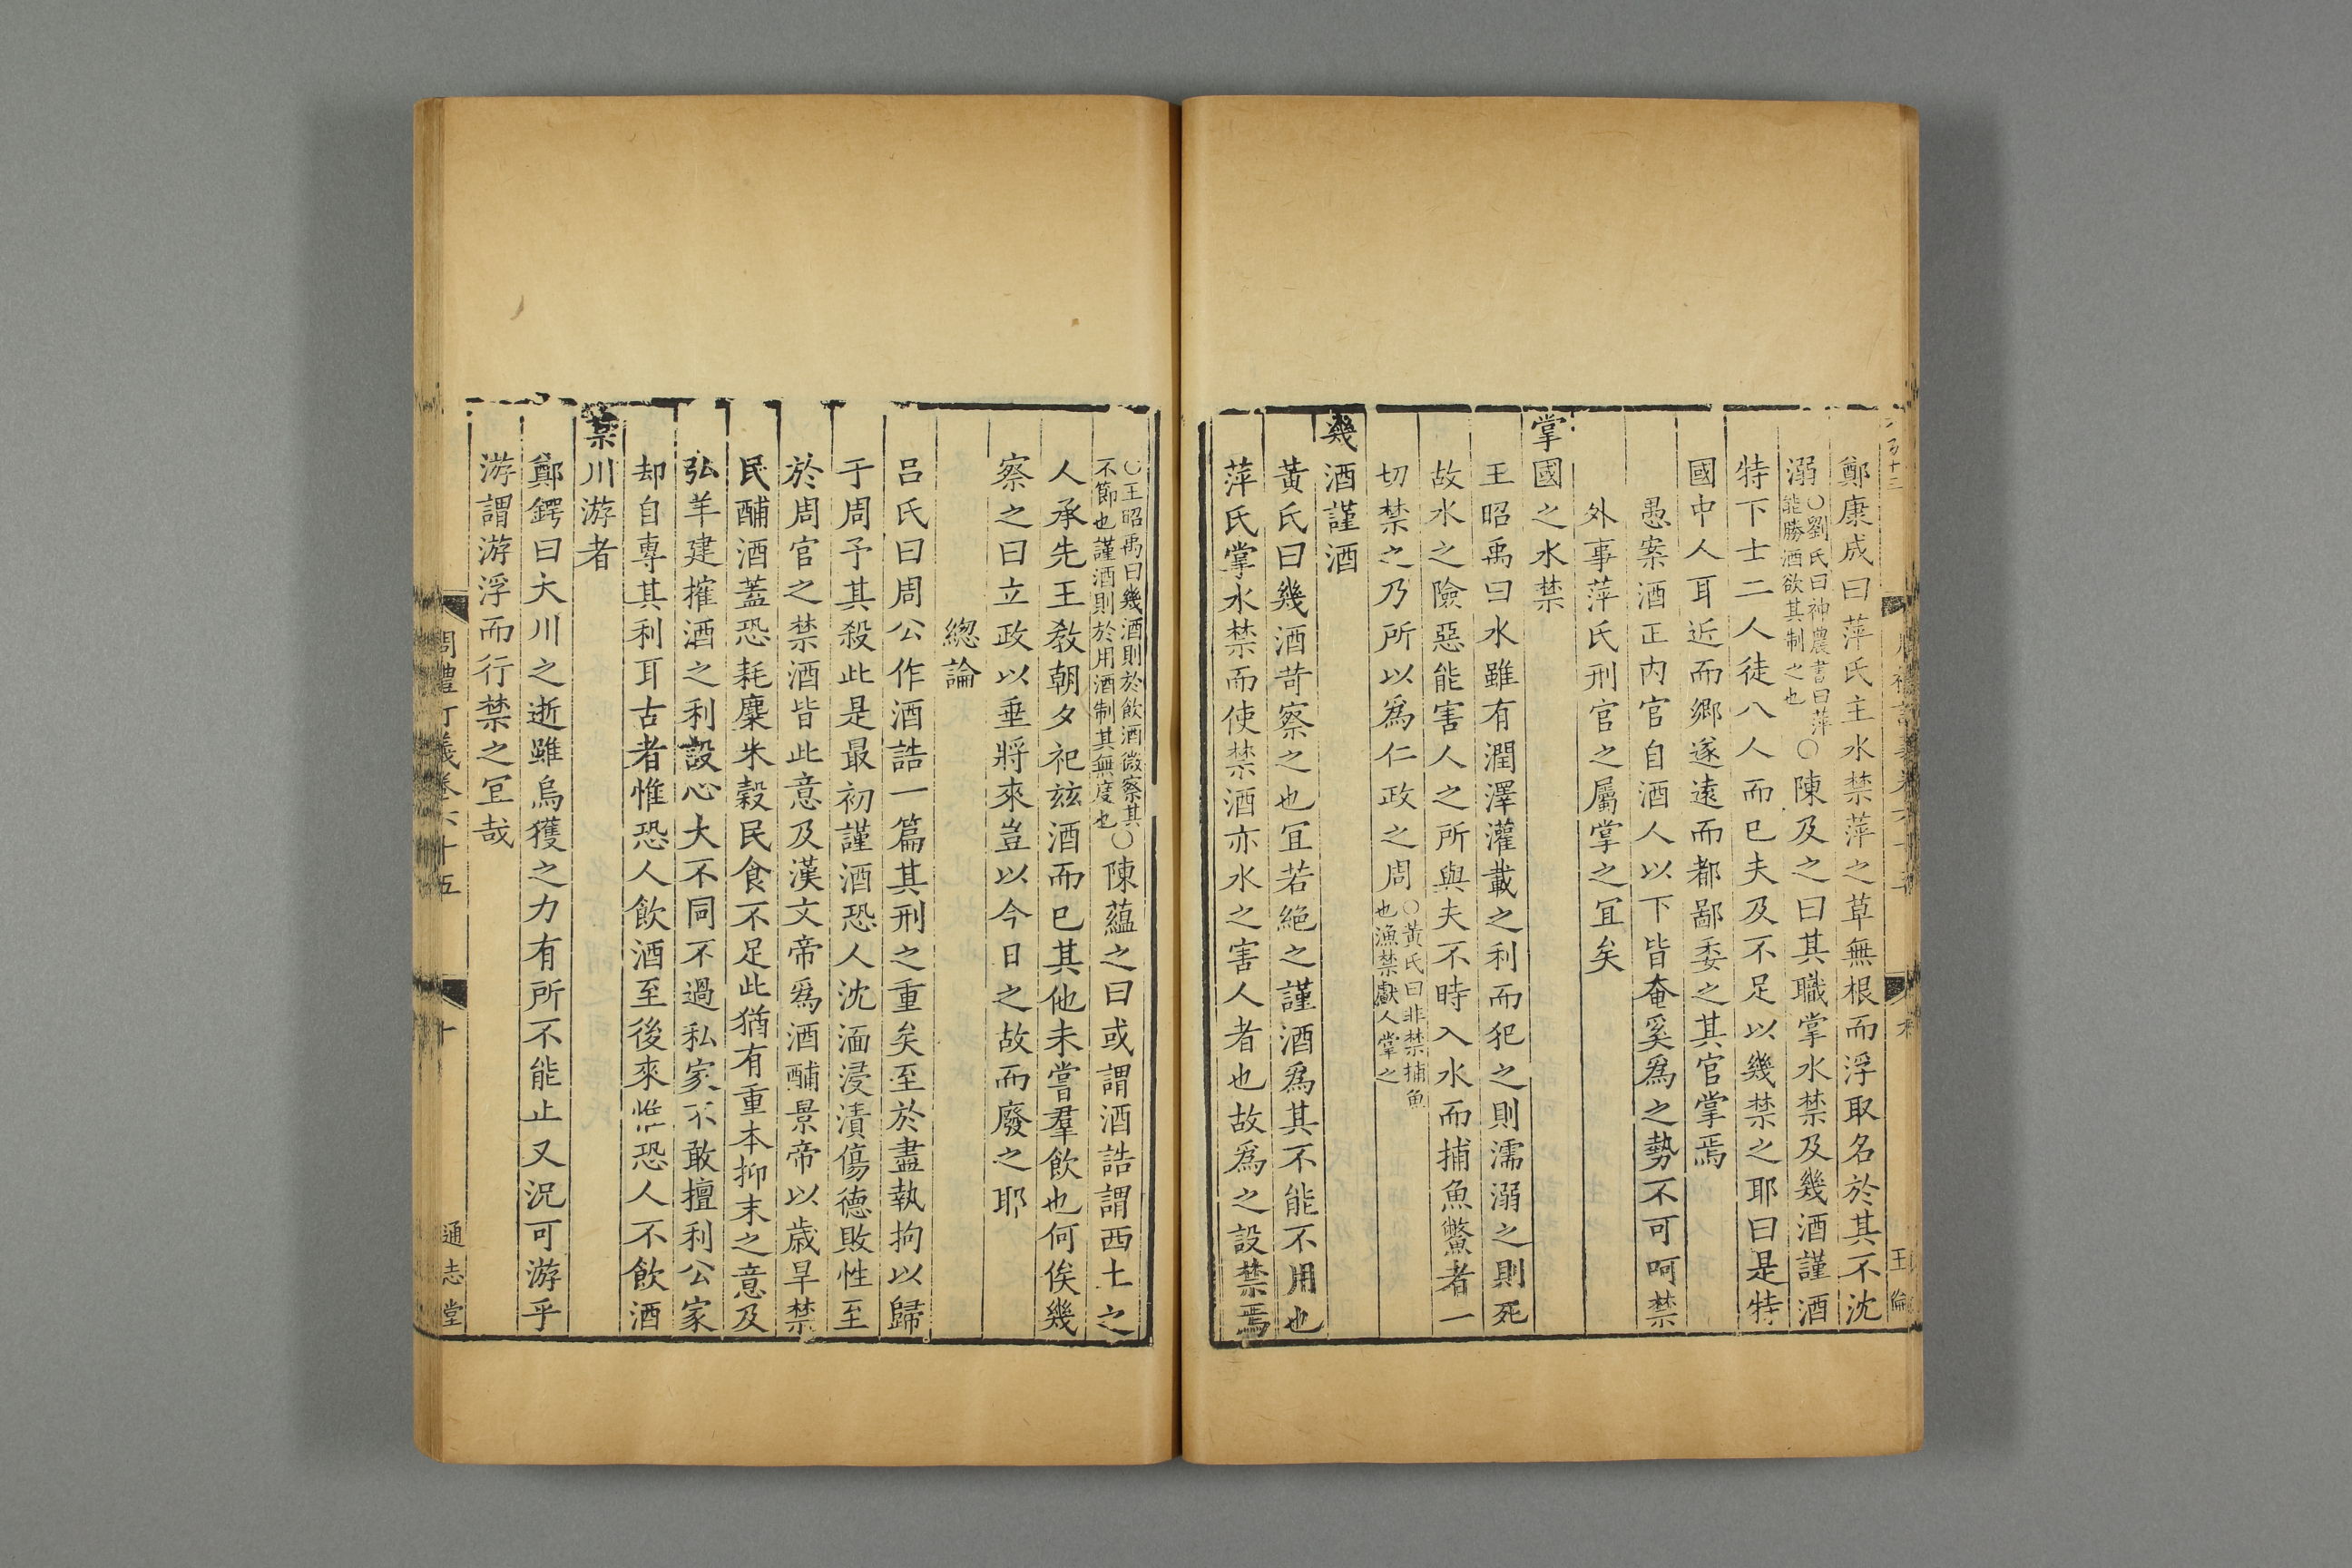 鄭康成曰萍氏主水禁萍之草無根而浮取名於其不沈
溺○劉氏曰神農書曰萍能勝酒欲其制之也○陳及之曰其職掌水禁及幾酒謹酒
特下士二人徒八人而已夫及不足以幾禁之耶曰是特
國中人耳近而鄉遂遠而都鄙委之其官掌焉
愚案酒正内官自酒人以下皆奄奚爲之勢不可呵禁
外事萍氏刑官之屬掌之宜矣
掌國之水禁
王昭禹曰水雖有潤澤灌載之利而犯之則濡溺之則死
故水之險惡能害人之所與夫不時入水而捕魚鱉者一
切禁之乃所以爲仁政之周○黃氏曰非禁捕魚也漁禁䱷人掌之
幾酒謹酒
黃氏曰幾酒苛察之也冝若絶之謹酒爲其不能不用也
萍氏掌水禁而使禁酒亦水之害人者也故爲之設禁焉
○王昭禹曰幾酒則於飲酒微察其不節也謹酒則於用酒制其無度也○陳蘊之曰或謂酒誥謂西土之
人承先王敎朝夕祀兹酒而已其他未嘗羣飲也何俟幾
察之曰立政以垂將來豈以今日之故而廢之耶
緫論
呂氏曰周公作酒誥一篇其刑之重矣至於盡執拘以歸
于周予其殺此是最初謹酒恐人沈湎浸漬傷德敗性至
於周官之禁酒皆此意及漢文帝爲酒酺景帝以歲旱禁
民酺酒蓋恐耗麋米穀民食不足此猶有重本抑末之意及
弘羊建搉酒之利設心大不同不過私家不敢擅利公家
却自專其利耳古者惟恐人飲酒至後來惟恐人不飲酒
禁川游者
鄭鍔曰大川之逝雖烏獲之力有所不能止又況可游乎
游謂游浮而行禁之冝哉
周禮訂義卷六十五
十
通志堂
王倫